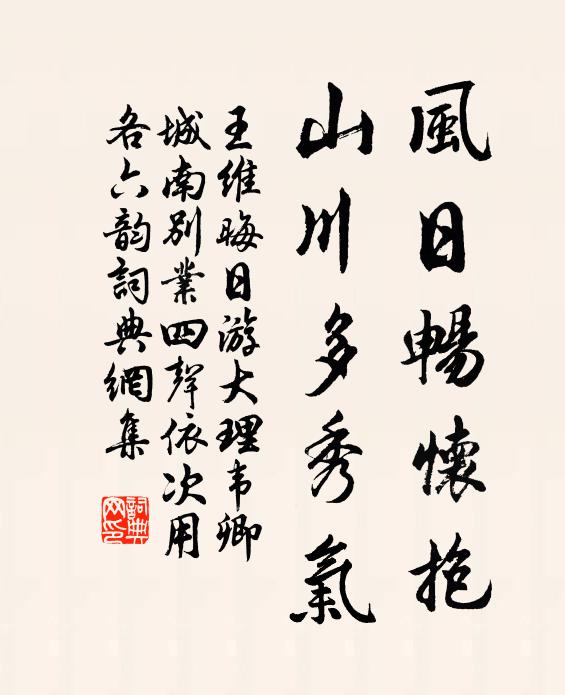 風日暢懷抱
山川多秀氣
王維晦日游大理韦卿
城南别業四聲依次用
各六韵詞典網集
詞典网印